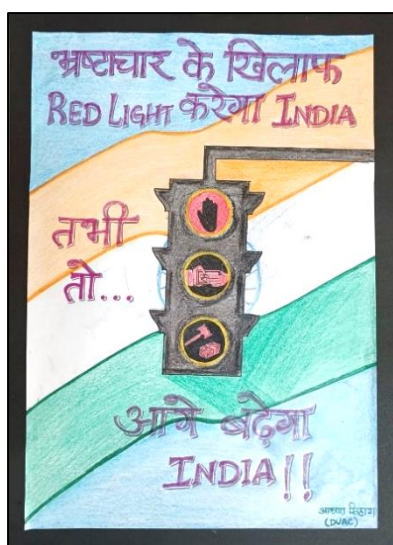 भ्रष्टाचार के खिलाफ
RED LIGHT करेगा INDIA
तभी
तो...
आगे बढ़ेगा
INDIA!!
(DVAC)